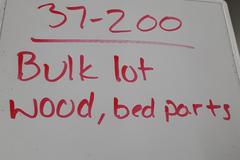 37-200
Bulk lot
wood, bed parts